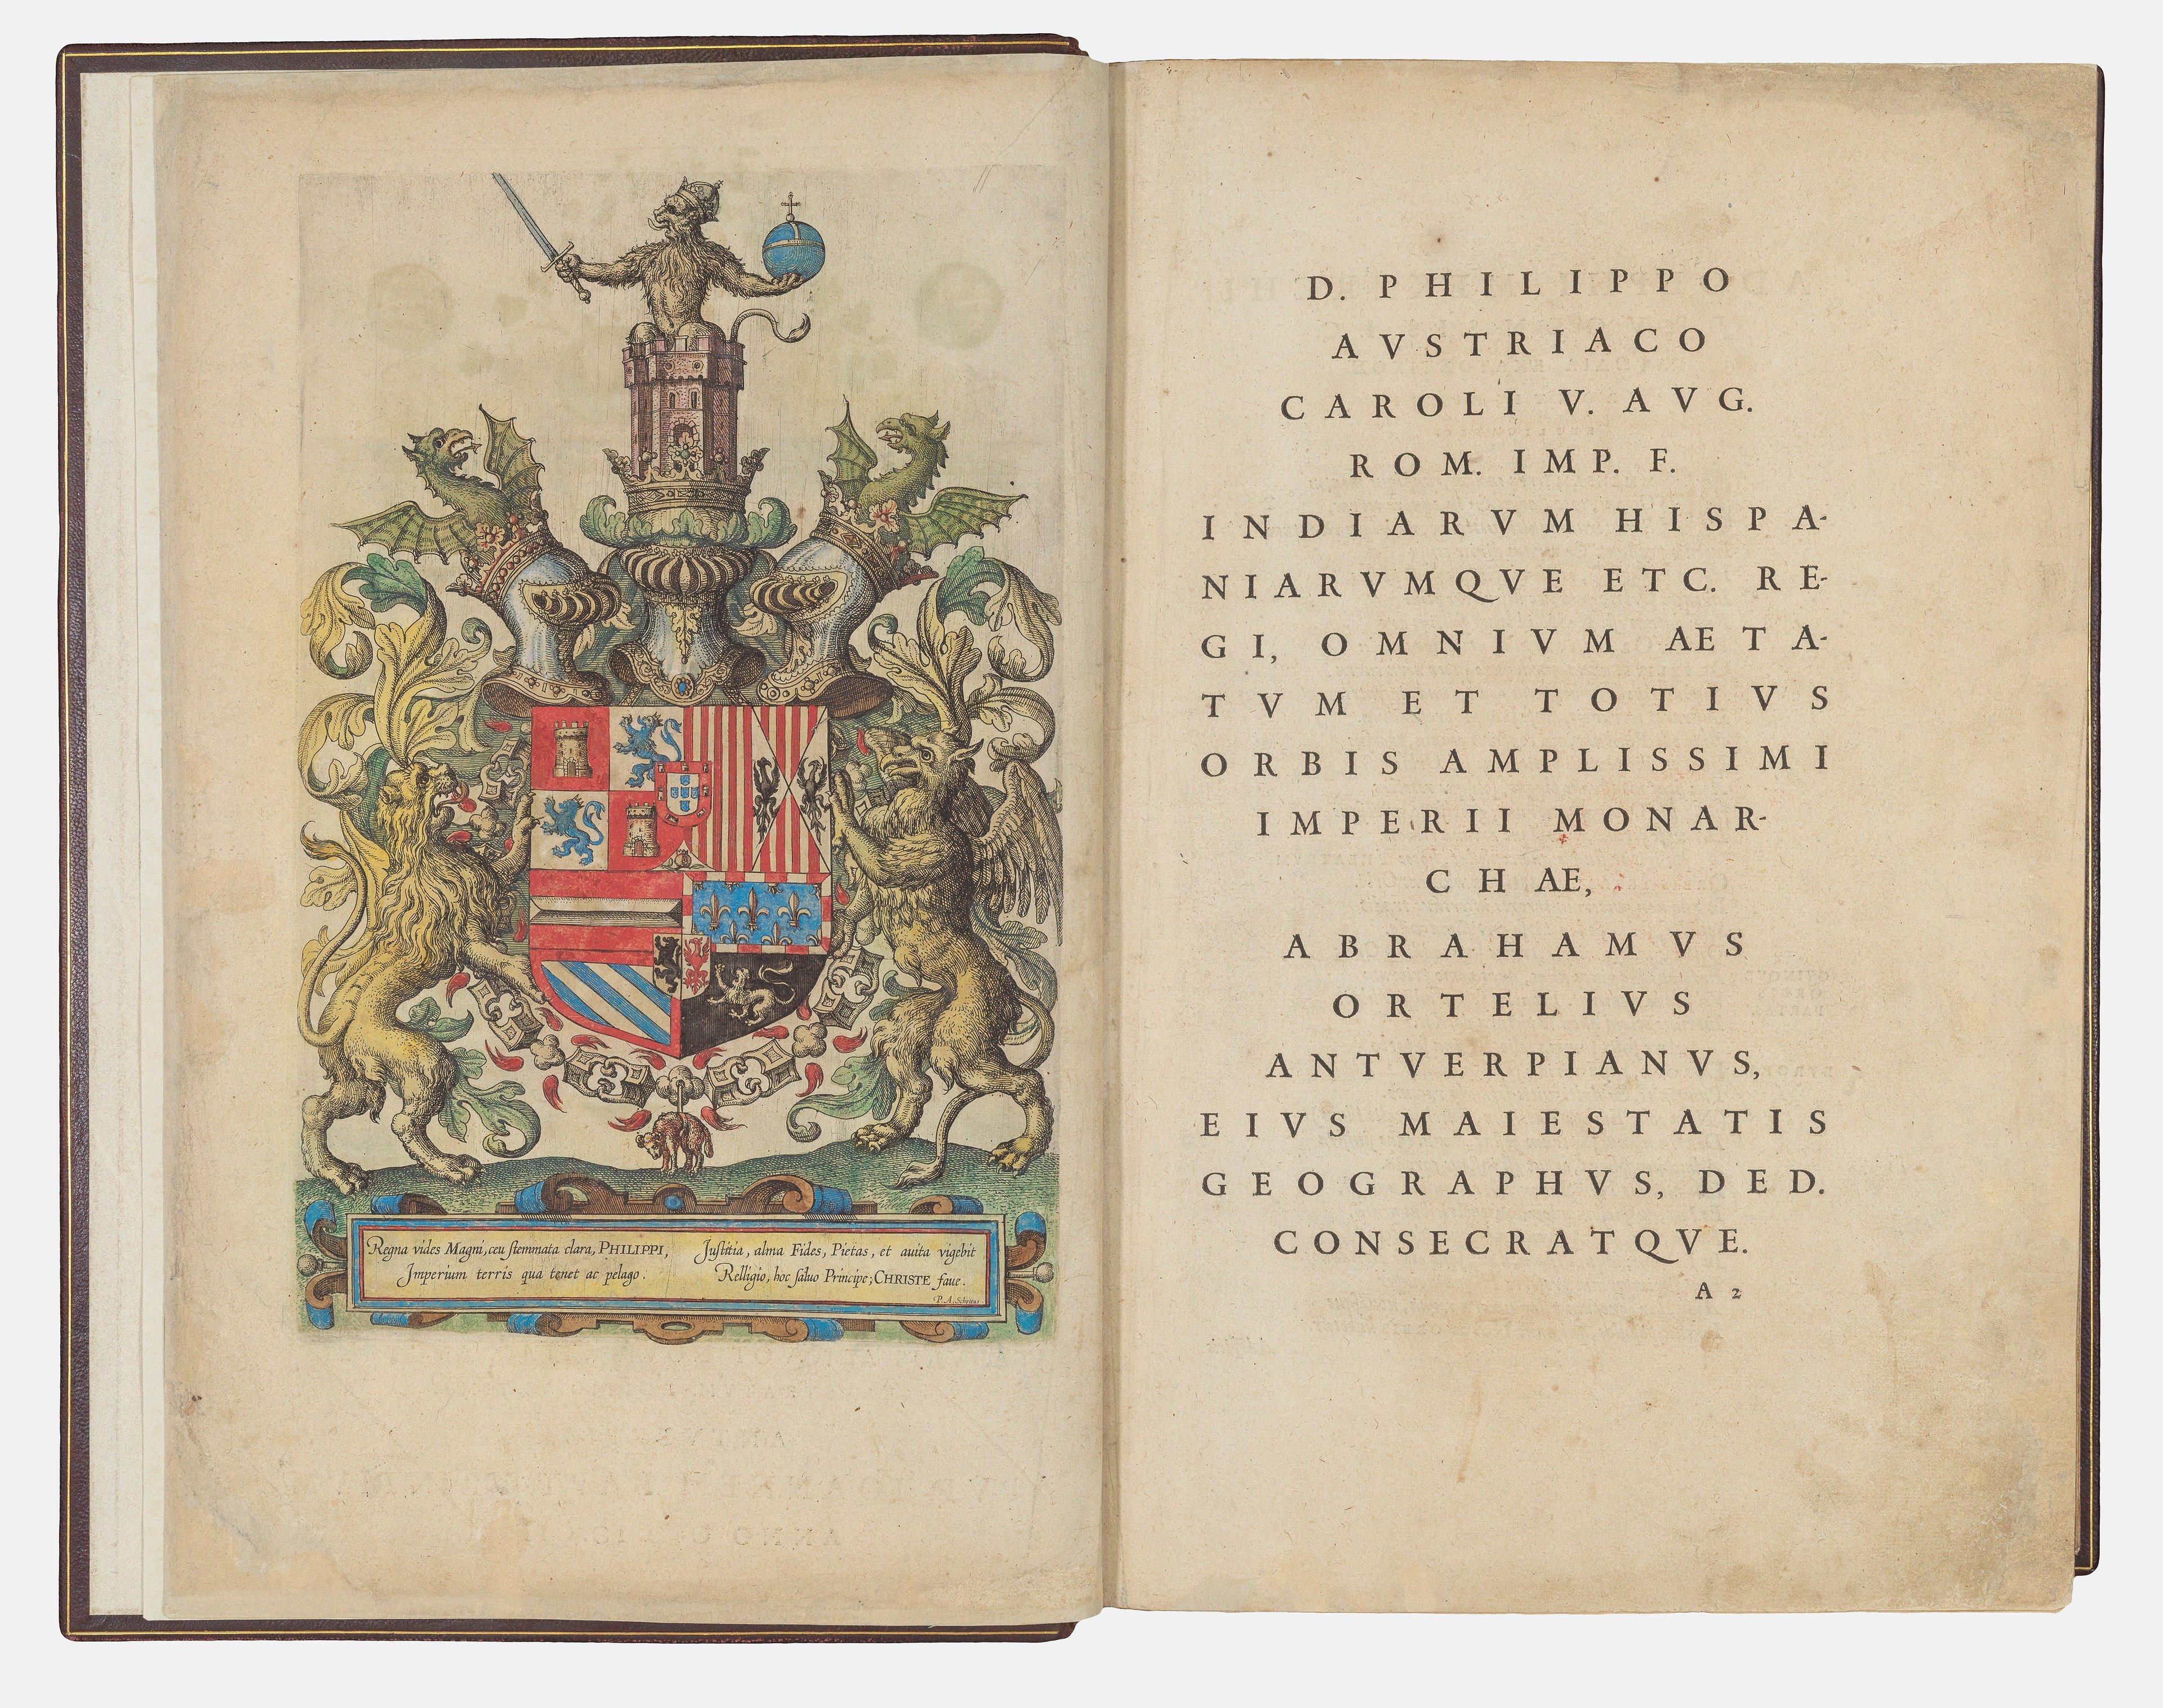 Regna vides Magni, ceu stemmata clara, PHILIPPI,
Imperium terris qua tenet ac pelago.
Justitia, alma Fides, Pietas, et auita vigebit
Relligio, hoc saluo Principe; CHRISTE faue.
P. A. Schottus
D. PHILIPPO
AVSTRIACO
CAROLI V. AVG.
ROM. IMP. F.
INDIARVM HISPA-
NIARVMQVE ETC. RE-
GI, OMNIVM AETA-
TVM ET TOTIVS
ORBIS AMPLISSIMI
IMPERII MONAR-
CHAE,
ABRAHAMVS
ORTELIVS
ANTVERPIANVS,
EIVS MAIESTATIS
GEOGRAPHVS, DED.
CONSECRATQVE.
A 2